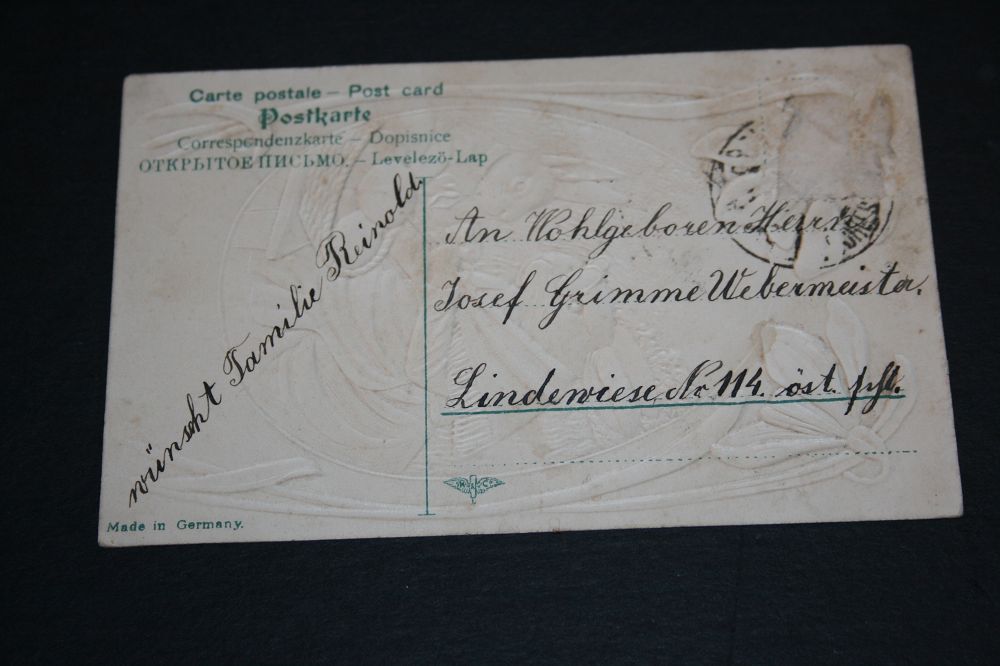 Carte postale — Post card
Postkarte
Correspondenzkarte — Dopisnice
ОТКРЫТОЕ ПИСЬМО. — Levelező-Lap
wünscht Familie Reinold
An Wohlgeboren Herrn
Josef Grimme Webermeister.
Lindewiese Nr 114. öst. schl.
Made in Germany.